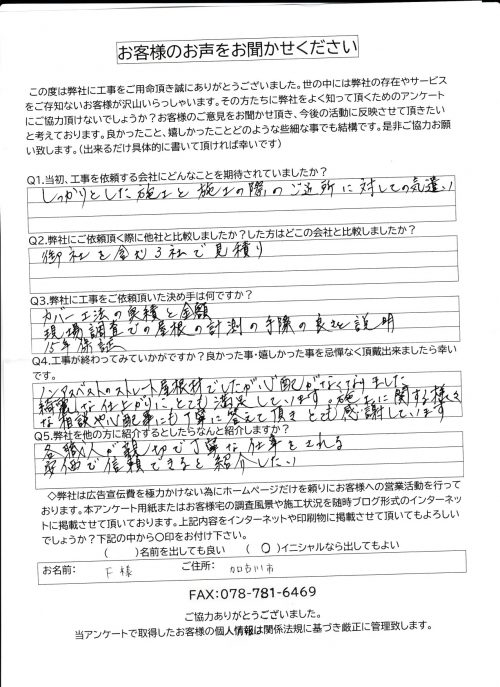 お客様のお声をお聞かせください
この度は弊社に工事をご用命頂き誠にありがとうございました。世の中には弊社の存在やサービス
をご存知ないお客様が沢山いらっしゃいます。その方たちに弊社をよく知って頂くためのアンケート
にご協力頂けないでしょうか？お客様のご意見をお聞かせ頂き、今後の活動に反映させて頂きたい
と考えております。良かったこと、嬉しかったことどのような些細な事でも結構です。是非ご協力お願
い致します。（出来るだけ具体的に書いて頂ければ幸いです）
Q1.当初、工事を依頼する会社にどんなことを期待されていましたか？
しっかりとした施工と施工の際のご近所に対しての気遣い
Q2.弊社にご依頼頂く際に他社と比較しましたか？した方はどこの会社と比較しましたか？
御社を含む3社で見積り
Q3.弊社に工事をご依頼頂いた決め手は何ですか？
カバー工法の実績と金額
現場調査での屋根の計測の手際の良さと説明
15年保証
Q4.工事が終わってみていかがですか？良かった事・嬉しかった事を忌憚なく頂戴出来ましたら幸い
です。
ノンアスベストのスレート屋根材でしたが心配がなくなりました
綺麗な仕上がりにとても満足しています。施工に関する様々
な相談や心配事にも丁寧に答えて頂きとても感謝しています
Q5.弊社を他の方に紹介するとしたらなんと紹介しますか？
各職人が親切で丁寧な仕事をされる
安価で信頼できると紹介したい
◇弊社は広告宣伝費を極力かけない為にホームページだけを頼りにお客様への営業活動を行って
おります。本アンケート用紙またはお客様宅の調査風景や施工状況を随時ブログ形式のインターネッ
トに掲載させて頂いております。上記内容をインターネットや印刷物に掲載させて頂いてもよろしい
でしょうか？下記の中から〇印をお付け下さい。
（　）名前を出しても良い　（ 〇 ）イニシャルなら出してもよい
お名前： F 様 ご住所： 加古川市
FAX:078-781-6469
ご協力ありがとうございました。
当アンケートで取得したお客様の個人情報は関係法規に基づき厳正に管理致します。